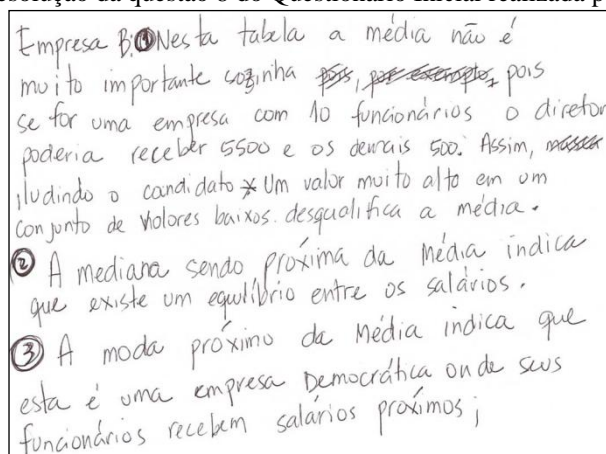 resolução da questão 8 do Questionário Inicial realizada p
Empresa B: ① Nesta tabela a média não é
muito importante sozinha pois, por exemplo, pois
se for uma empresa com 10 funcionários o diretor
poderia receber 5500 e os demais 500. Assim,
iludindo o candidato * Um valor muito alto em um
conjunto de valores baixos. desqualifica a média.
② A mediana sendo próxima da média indica
que existe um equilíbrio entre os salários.
③ A moda próximo da média indica que
esta é uma empresa Democrática onde seus
funcionários recebem salários próximos;